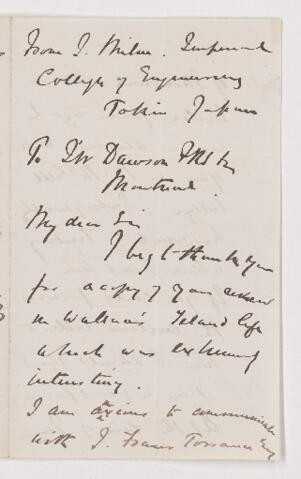 From J. Milne. Imperial
College of Engineering
Tokio Japan
To Dr Dawson FRS &c
Montreal.
My dear Sir
I beg to thank you
for a copy of your review
on Wallace's Island life
which was extremely
interesting.
I am anxious to communicate
with J. Fraser Torrance Esq